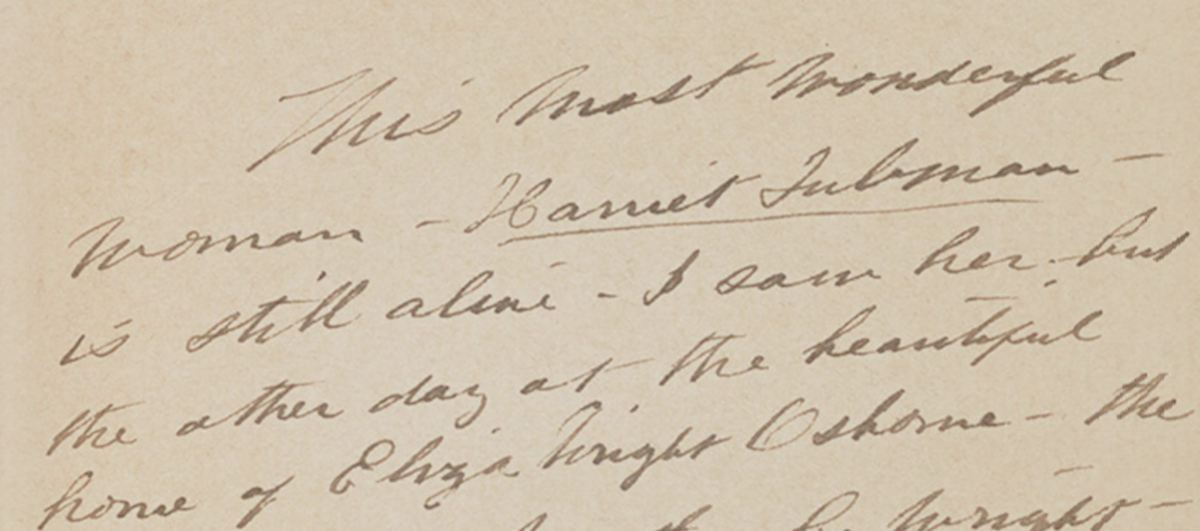 This most wonderful
woman - Harriet Tubman -
is still alive - I saw her but
the other day at the beautiful
home of Eliza Wright Osborne - the
Wright -